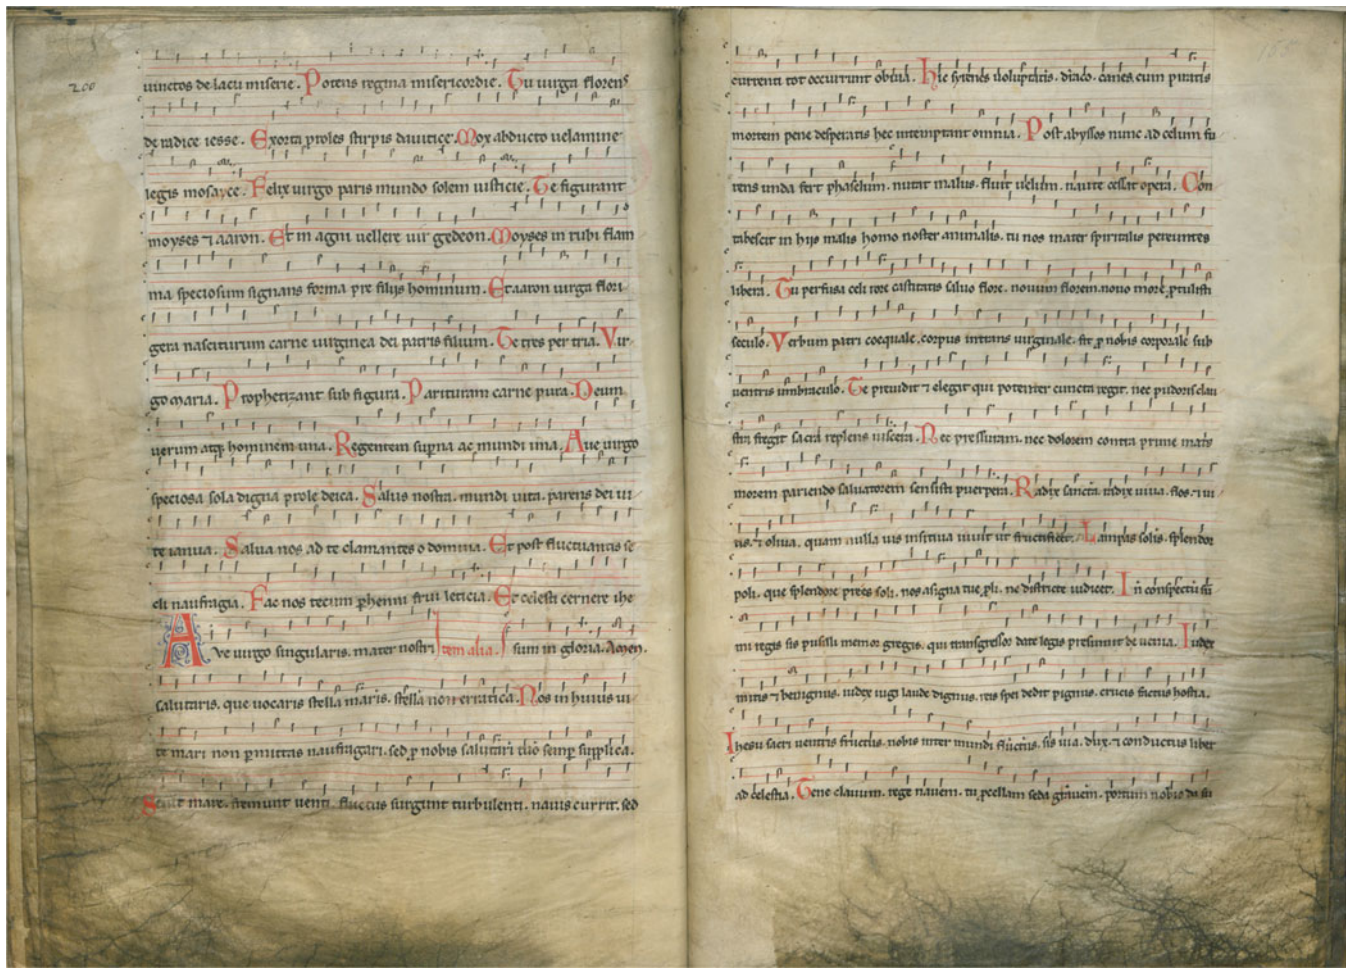 200
uinctos de lacu miserie. Potens regina misericordie. Tu uirga florens
de radice iesse. Exorta proles stirpis dauitice. Mox abducto uelamine
legis mosayce. Felix uirgo paris mundo solem iusticie. Te figurant
moyses ⁊ aaron. Et in agni uellere uir gedeon. Moyses in rubi flam
ma speciosum signans forma pre filiis hominum. Et aaron uirga flori
gera nasciturum carne uirginea dei patris filium. Te tres per tria. Vir
go maria. Prophetizant sub figura. Parituram carne pura. Deum
uerum atq; hominem una. Regentem supna ac mundi ima. Aue uirgo
speciosa sola digna prole deica. Salus nostra. mundi uita. parens dei ui
te ianua. Salua nos ad te clamantes o domina. Et post fluctuantis se
cli naufragia. Fac nos tecum phenni frui leticia. Et celesti cernere ihe
Ave uirgo singularis. mater nostri Item alia. sum in gloria. Amen.
salutaris. que uocaris stella maris. stella non erratica. Nos in huius ui
te mari non pmittas naufragari. sed p nobis salutari tuo semp supplica.
Seuit mare. fremunt uenti. fluctus surgunt turbulenti. nauis currit. sed
155
currenti tot occurrunt obuia. Hic syrenes uoluptatis. draco. canes cum piratis
mortem pene desperatis hec intemptant omnia. Post abyssos nunc ad celum fu
rens unda fert phaselum. nutat malus. fluit uelum. naute cessat opera. Con
tabescit in hijs malis homo noster animalis. tu nos mater spiritalis pereuntes
libera. Tu perfusa celi rore castitatis saluo flore. nouum florem. nouo more. ptulisti
seculo. Verbum patri coequale. corpus intrans uirginale. fit p nobis corporale sub
uentris umbraculo. Te preuidit ⁊ elegit qui potenter cuncta regit. nec pudoris clau
stra fregit sacra replens uiscera. Nec pressuram. nec dolorem contra prime matris
morem pariendo saluatorem sensisti puerpera. Radix sancta. radix uiua. flos. ⁊ ui
tis. ⁊ oliua. quam nulla uis insitiua iuuit ut fructificet. Lampas solis. splendor
poli. que splendore prees soli. nos asigna tue pli. ne districte iudicet. In conspectu sum
mi regis sis pusilli memor gregis. qui transgressor date legis presumit de uenia. Iudex
mitis ⁊ benignus. iudex iugi laude dignus. reis spei dedit pignus. crucis factus hostia.
Ihesu sacri uentris fructus. nobis inter mundi fluctus. sis uia. dux. ⁊ conductus liber
ad celestia. Tene clauum. rege nauem. tu pcellam seda grauem. portum nobis da su